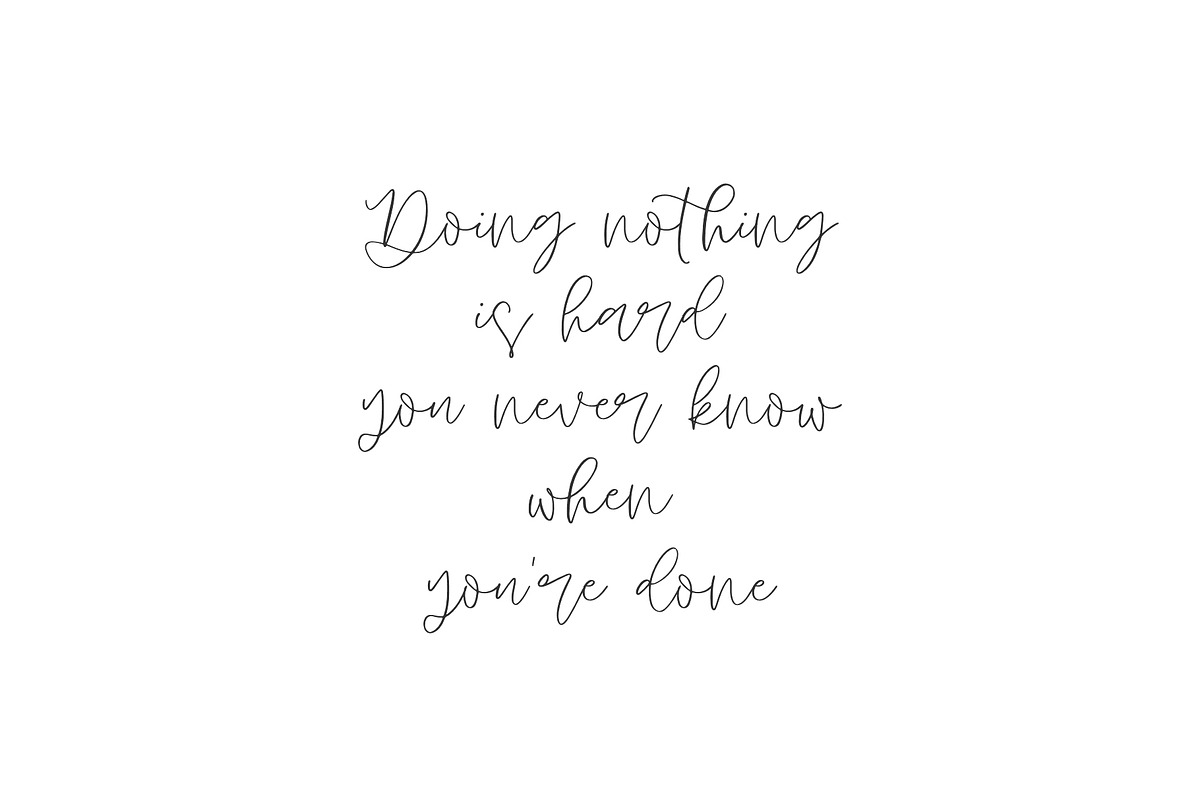 Doing nothing
is hard
you never know
when
you're done